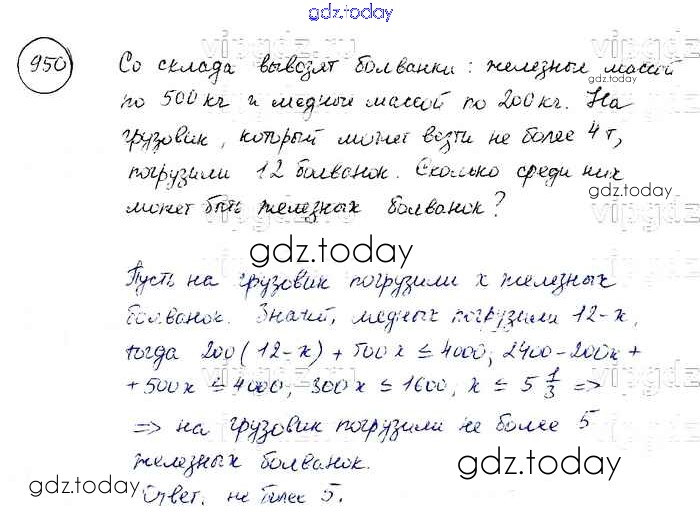 gdz.today
950
Со склада вывозят болванки: железные массой
по 500 кг и медные массой по 200 кг. На
грузовик, который может везти не более 4 т,
погрузили 12 болванок. Сколько среди них
может быть железных болванок?
gdz.today
Пусть на грузовик погрузили x железных
болванок. Значит, медных погрузили 12-x,
тогда 200(12-x) + 500x ≤ 4000, 2400-200x +
+ 500x ≤ 4000, 300x ≤ 1600, x ≤ 5 1/3 =>
=> на грузовик погрузили не более 5
железных болванок.
Ответ. не более 5.
gdz.today
gdz.today
gdz.today
gdz.today
vipgdz
vipgdz
vipgdz
vipgdz